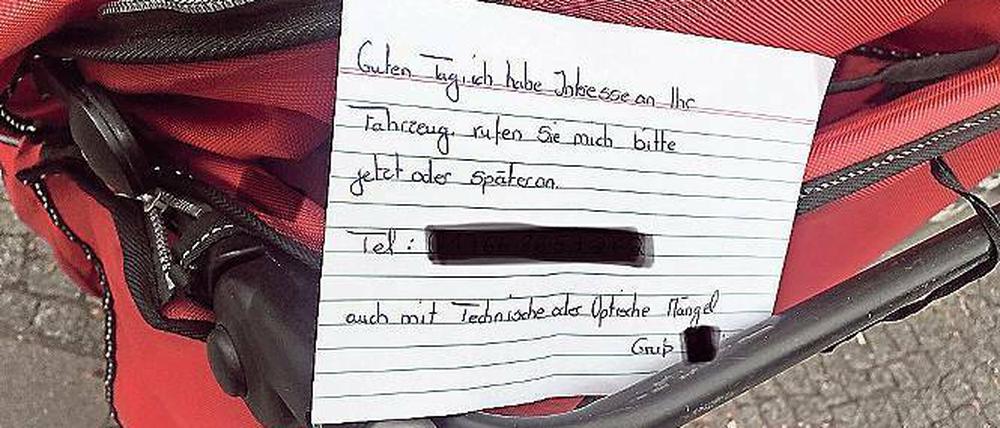 Guten Tag, ich habe Intresse an Ihr
Fahrzeug, rufen Sie mich bitte
jetzt oder später an.
Tel :
auch mit Technische oder Optische Mängel
Gruß